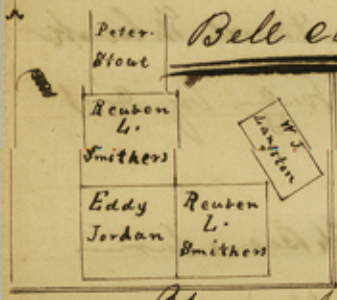 Peter
Stout
Bell
Reuben
L.
Smithers
W. J.
Langston
Eddy
Jordan
Reuben
L.
Smithers